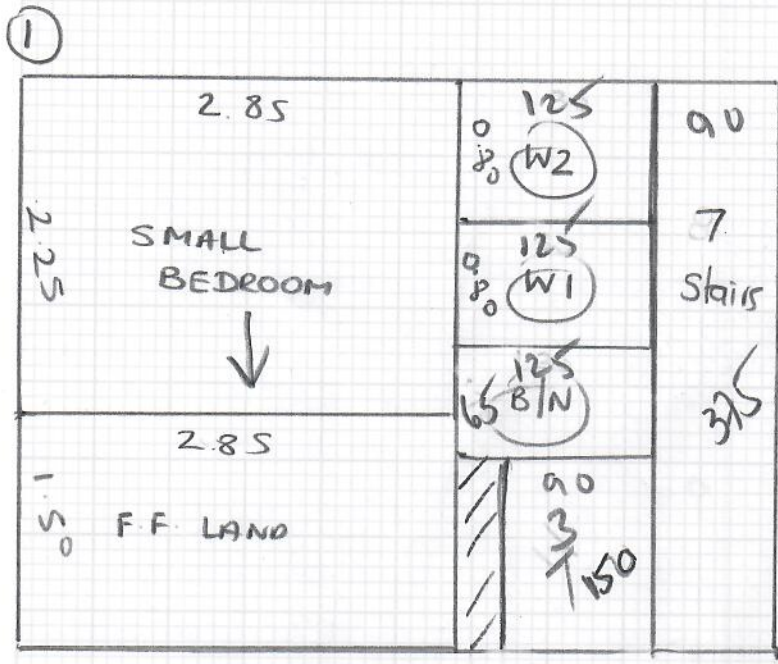 1
2.85
2.25
SMALL
BEDROOM
2.85
1.50
F.F. LAND
125
0.80
W2
125
0.80
W1
125
65
B/N
90
3
150
90
7
Stairs
375